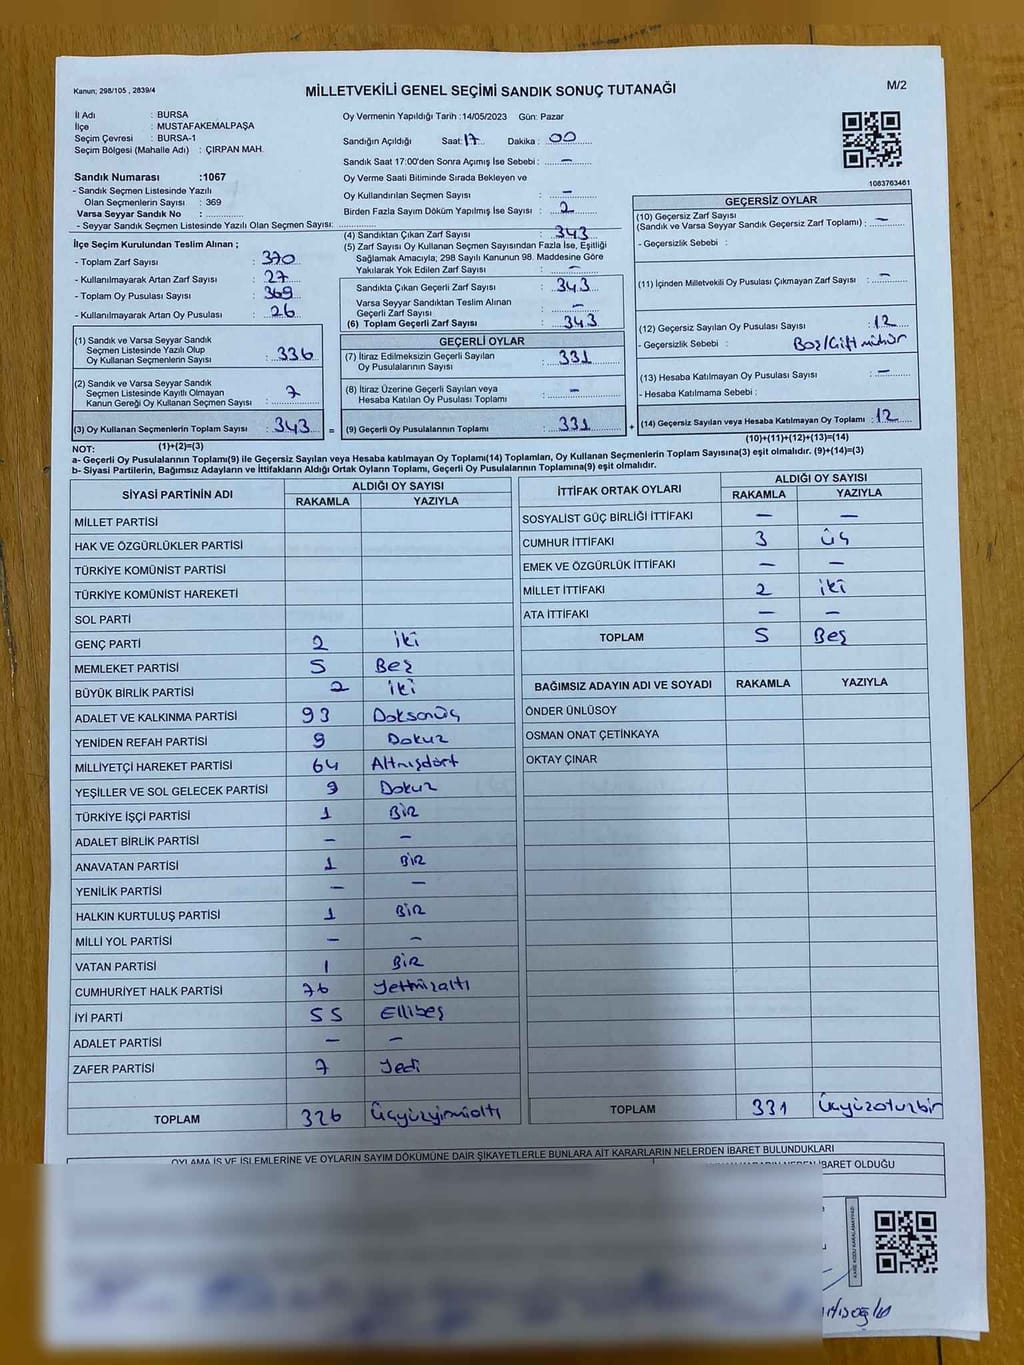 Kanun; 298/105 , 2839/4
MİLLETVEKİLİ GENEL SEÇİMİ SANDIK SONUÇ TUTANAĞI
M/2
İl Adı : BURSA
İlçe : MUSTAFAKEMALPAŞA
Seçim Çevresi : BURSA-1
Seçim Bölgesi (Mahalle Adı) : ÇIRPAN MAH.
Oy Vermenin Yapıldığı Tarih :14/05/2023 Gün: Pazar
Sandığın Açıldığı Saat: 17 Dakika : 00
Sandık Saat 17:00'den Sonra Açımış İse Sebebi : –
Oy Verme Saati Bitiminde Sırada Bekleyen ve
Oy Kullandırılan Seçmen Sayısı : –
Birden Fazla Sayım Döküm Yapılmış İse Sayısı : 2
1083763461
Sandık Numarası :1067
- Sandık Seçmen Listesinde Yazılı
Olan Seçmenlerin Sayısı : 369
Varsa Seyyar Sandık No :
- Seyyar Sandık Seçmen Listesinde Yazılı Olan Seçmen Sayısı:
İlçe Seçim Kurulundan Teslim Alınan ;
- Toplam Zarf Sayısı : 370
- Kullanılmayarak Artan Zarf Sayısı : 27
- Toplam Oy Pusulası Sayısı : 369
- Kullanılmayarak Artan Oy Pusulası : 26
(1) Sandık ve Varsa Seyyar Sandık
Seçmen Listesinde Yazılı Olup
Oy Kullanan Seçmenlerin Sayısı : 336
(2) Sandık ve Varsa Seyyar Sandık
Seçmen Listesinde Kayıtlı Olmayan
Kanun Gereği Oy Kullanan Seçmen Sayısı : 7
(3) Oy Kullanan Seçmenlerin Toplam Sayısı : 343
(1)+(2)=(3)
(4) Sandıktan Çıkan Zarf Sayısı : 343
(5) Zarf Sayısı Oy Kullanan Seçmen Sayısından Fazla İse, Eşitliği
Sağlamak Amacıyla; 298 Sayılı Kanunun 98. Maddesine Göre
Yakılarak Yok Edilen Zarf Sayısı : –
Sandıkta Çıkan Geçerli Zarf Sayısı : 343
Varsa Seyyar Sandıktan Teslim Alınan
Geçerli Zarf Sayısı : –
(6) Toplam Geçerli Zarf Sayısı : 343
GEÇERLİ OYLAR
(7) İtiraz Edilmeksizin Geçerli Sayılan
Oy Pusulalarının Sayısı : 331
(8) İtiraz Üzerine Geçerli Sayılan veya
Hesaba Katılan Oy Pusulası Toplamı : –
= (9) Geçerli Oy Pusulalarının Toplamı : 331 +
GEÇERSİZ OYLAR
(10) Geçersiz Zarf Sayısı
(Sandık ve Varsa Seyyar Sandık Geçersiz Zarf Toplamı) : –
- Geçersizlik Sebebi :
(11) İçinden Milletvekili Oy Pusulası Çıkmayan Zarf Sayısı : –
(12) Geçersiz Sayılan Oy Pusulası Sayısı : 12
- Geçersizlik Sebebi : Boş/Çift mühür
(13) Hesaba Katılmayan Oy Pusulası Sayısı : –
- Hesaba Katılmama Sebebi :
(14) Geçersiz Sayılan veya Hesaba Katılmayan Oy Toplamı : 12
(10)+(11)+(12)+(13)=(14)
NOT:
a- Geçerli Oy Pusulalarının Toplamı(9) ile Geçersiz Sayılan veya Hesaba katılmayan Oy Toplamı(14) Toplamları, Oy Kullanan Seçmenlerin Toplam Sayısına(3) eşit olmalıdır. (9)+(14)=(3)
b- Siyasi Partilerin, Bağımsız Adayların ve İttifakların Aldığı Ortak Oyların Toplamı, Geçerli Oy Pusulalarının Toplamına(9) eşit olmalıdır.
SİYASİ PARTİNİN ADI ALDIĞI OY SAYISI
RAKAMLA YAZIYLA
MİLLET PARTİSİ
HAK VE ÖZGÜRLÜKLER PARTİSİ
TÜRKİYE KOMÜNİST PARTİSİ
TÜRKİYE KOMÜNİST HAREKETİ
SOL PARTİ
GENÇ PARTİ 2 iki
MEMLEKET PARTİSİ 5 Beş
BÜYÜK BİRLİK PARTİSİ 2 iki
ADALET VE KALKINMA PARTİSİ 93 Doksanüç
YENİDEN REFAH PARTİSİ 9 Dokuz
MİLLİYETÇİ HAREKET PARTİSİ 64 Altmışdört
YEŞİLLER VE SOL GELECEK PARTİSİ 9 Dokuz
TÜRKİYE İŞÇİ PARTİSİ 1 BİR
ADALET BİRLİK PARTİSİ – –
ANAVATAN PARTİSİ 1 BİR
YENİLİK PARTİSİ – –
HALKIN KURTULUŞ PARTİSİ 1 BİR
MİLLİ YOL PARTİSİ – –
VATAN PARTİSİ 1 BİR
CUMHURİYET HALK PARTİSİ 76 Yetmişaltı
İYİ PARTİ 55 Ellibeş
ADALET PARTİSİ – –
ZAFER PARTİSİ 7 Yedi
TOPLAM 326 Üçyüzyirmialtı
İTTİFAK ORTAK OYLARI ALDIĞI OY SAYISI
RAKAMLA YAZIYLA
SOSYALİST GÜÇ BİRLİĞİ İTTİFAKI – –
CUMHUR İTTİFAKI 3 üç
EMEK VE ÖZGÜRLÜK İTTİFAKI – –
MİLLET İTTİFAKI 2 iki
ATA İTTİFAKI – –
TOPLAM 5 Beş
BAĞIMSIZ ADAYIN ADI VE SOYADI RAKAMLA YAZIYLA
ÖNDER ÜNLÜSOY
OSMAN ONAT ÇETİNKAYA
OKTAY ÇINAR
TOPLAM 331 Üçyüzotuzbir
OYLAMA İŞ VE İŞLEMLERİNE VE OYLARIN SAYIM DÖKÜMÜNE DAİR ŞİKAYETLERLE BUNLARA AİT KARARLARIN NELERDEN İBARET BULUNDUKLARI
KARARIN NEDEN İBARET OLDUĞU
KARE KODU KARALAMAYINIZ!